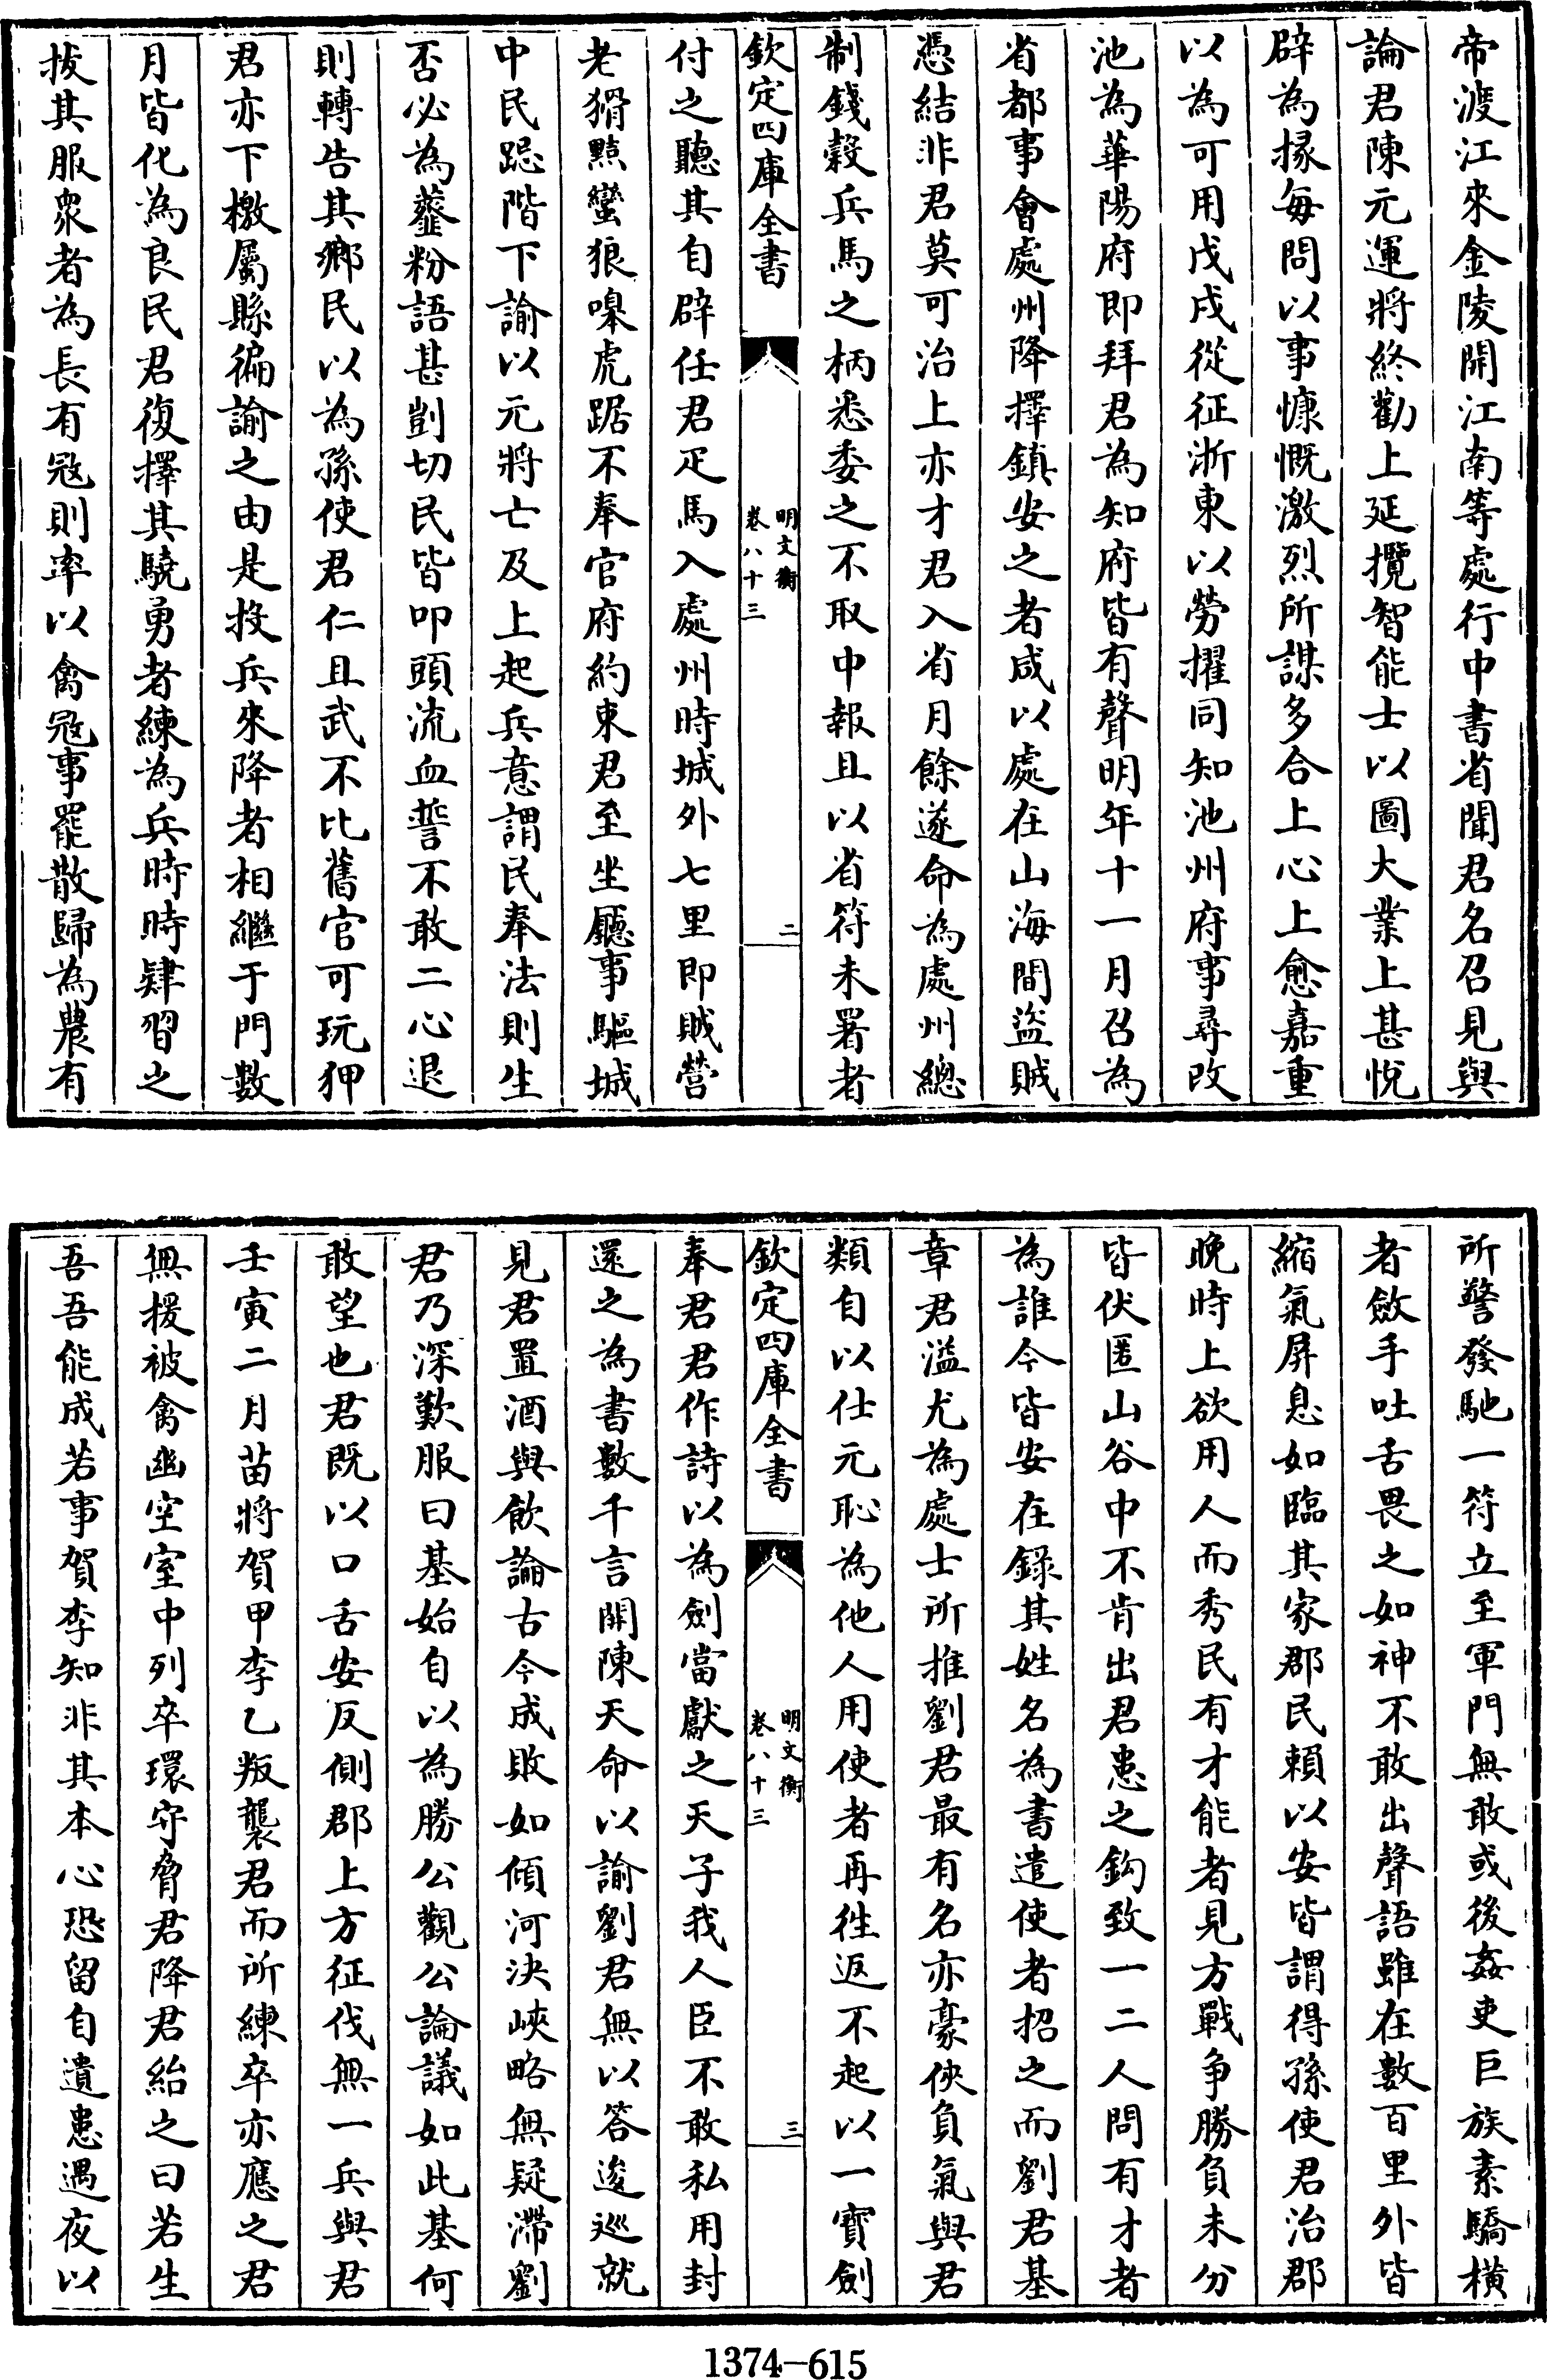 帝渡江來金陵開江南等處行中書省聞君名召見與
論君陳元運將終勸上延攬智能士以圖大業上甚悅
辟為掾每問以事慷慨激烈所謀多合上心上愈嘉重
以為可用戊戌從征浙東以勞擢同知池州府事尋改
池為華陽府即拜君為知府皆有聲明年十一月召為
省都事會處州降擇鎮安之者咸以處在山海間盜賊
憑結非君莫可治上亦才君入省月餘遂命為處州總
制錢穀兵馬之柄悉委之不取中報且以省符未署者
欽定四庫全書
明文衡
卷八十三
二
付之聽其自辟任君疋馬入處州時城外七里即賊營
老猾黠蠻狼嗥虎踞不奉官府約束君至坐廳事驅城
中民跽階下諭以元將亡及上起兵意謂民奉法則生
否必為虀粉語甚剴切民皆叩頭流血誓不敢二心退
則轉告其鄉民以為孫使君仁且武不比舊官可玩狎
君亦下檄屬縣徧諭之由是投兵來降者相繼于門數
月皆化為良民君復擇其驍勇者練為兵時時肄習之
拔其服衆者為長有冦則率以禽冦事罷散歸為農有
所警發馳一符立至軍門無敢或後姦吏巨族素驕橫
者斂手吐舌畏之如神不敢出聲語雖在數百里外皆
縮氣屏息如臨其家郡民賴以安皆謂得孫使君治郡
晚時上欲用人而秀民有才能者見方戰争勝負未分
皆伏匿山谷中不肯出君患之鈎致一二人問有才者
為誰今皆安在録其姓名為書遣使者招之而劉君基
章君溢尤為處士所推劉君最有名亦豪俠負氣與君
類自以仕元恥為他人用使者再徃返不起以一寶劍
欽定四庫全書
明文衡
卷八十三
三
奉君君作詩以為劍當獻之天子我人臣不敢私用封
還之為書數千言開陳天命以諭劉君無以答逡巡就
見君置酒與飲論古今成敗如傾河決峽略無疑滯劉
君乃深歎服曰基始自以為勝公觀公論議如此基何
敢望也君既以口舌安反側郡上方征伐無一兵與君
壬寅二月苗將賀甲李乙叛襲君而所練卒亦應之君
無援被禽幽空室中列卒環守脅君降君紿之曰若生
吾吾能成若事賀李知非其本心恐留自遺患遇夜以
1374-615